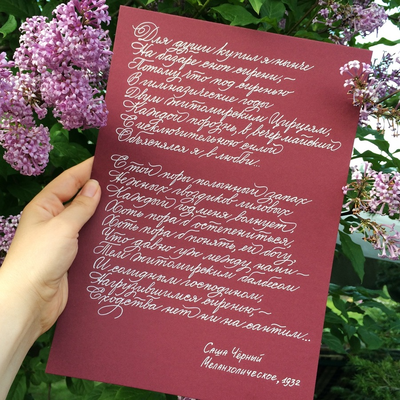 Для души купил я нынче
На базаре сноп сирени, —
Потому что под сиренью
В гимназические годы
Двум житомирским Цирцеям,
Каждой порознь, в вечер майский
С исключительною силой
Объяснялся я в любви.
С той поры полынный запах
Нежных гвоздиков лиловых
Каждый год меня волнует
Хоть пора б остепениться,
Хоть пора б понять, ей богу,
Что давно уж между нами —
Тем житомирским балбесом
И солидным господином,
Нагрузившимся сиренью, —
Сходства нет ни на сантим...
Саша Чёрный
Меланхолическое, 1932